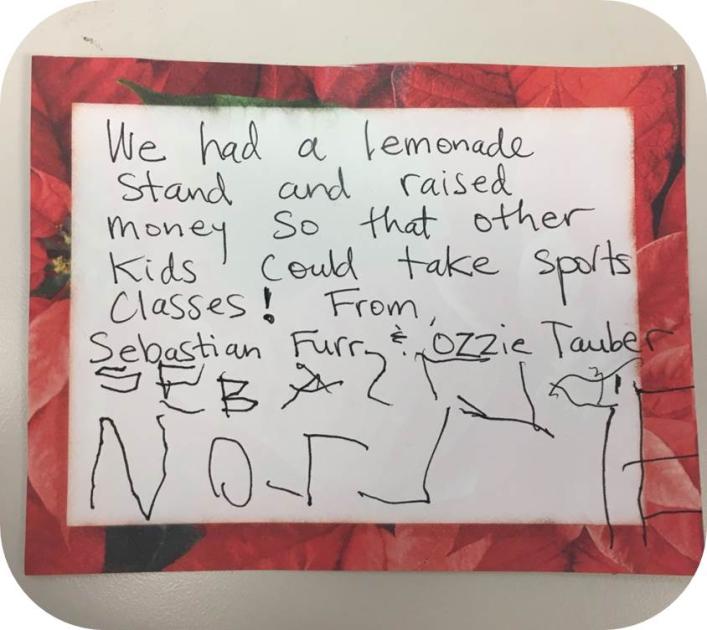 We had a lemonade
Stand and raised
money so that other
Kids Could take sports
Classes! From,
Sebastian Furr & Ozzie Tauber
SEBA
NO